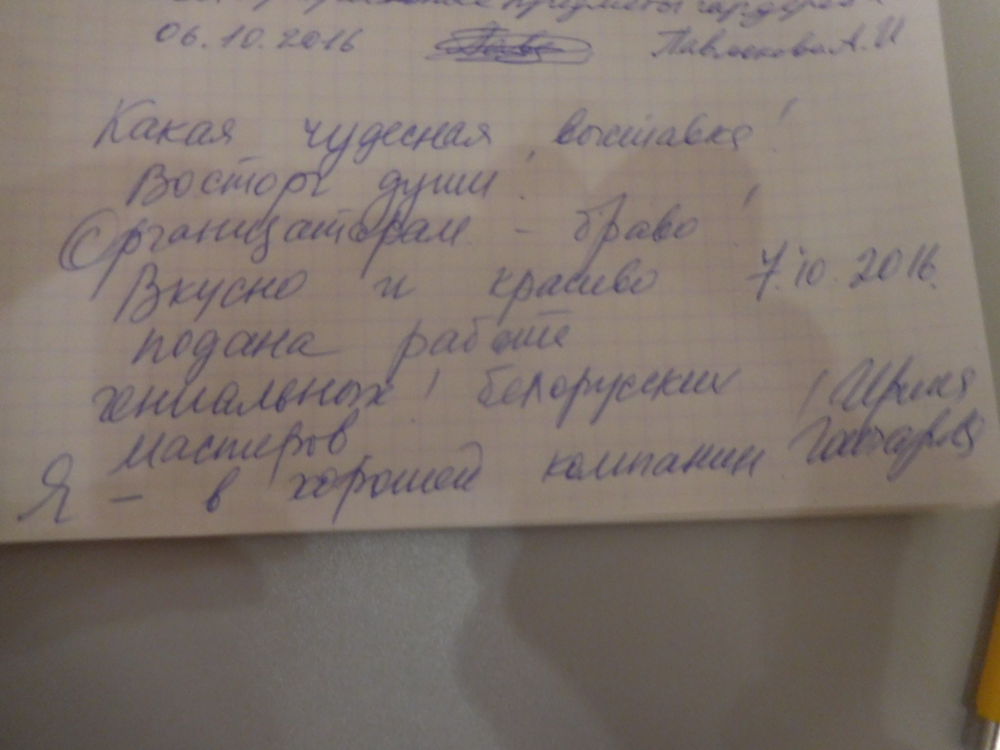 предметы гардероба
06.10.2016 Павлюкова А.И
Какая чудесная выставка!
Восторг души!
Организаторам - браво!
Вкусно и красиво 7.10.2016.
подана работе
гениальных белорусских
мастеров!
Я - в хорошей компании